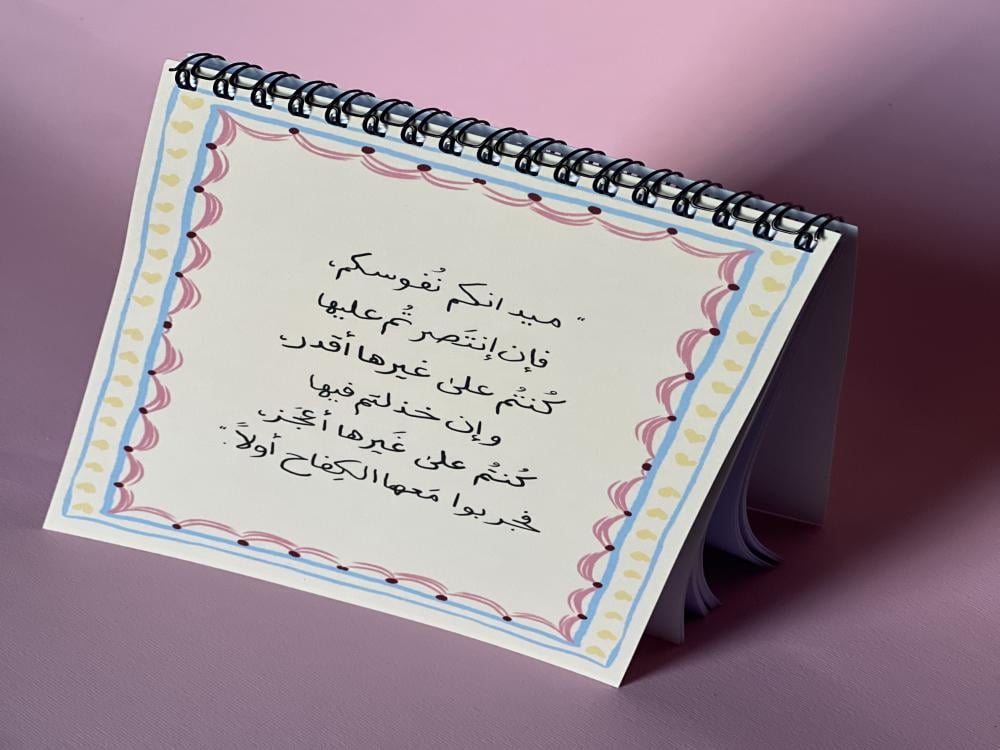 " ميدانكم نُفوسكم،
فإن إنتَصرتُم عليها
كُنتُم على غيرها أقدر،
وإن خذلتم فيها
كُنتُم على غَيرها أعجَز،
فجربوا مَعها الكِفاح أولاً. "